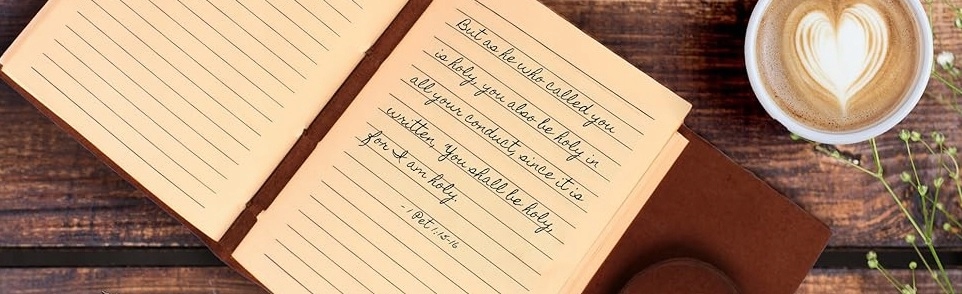 But as he who called you
is holy, you also be holy in
all your conduct, since it is
written, "You shall be holy,
for I am holy.
- 1 Pet 1:15-16